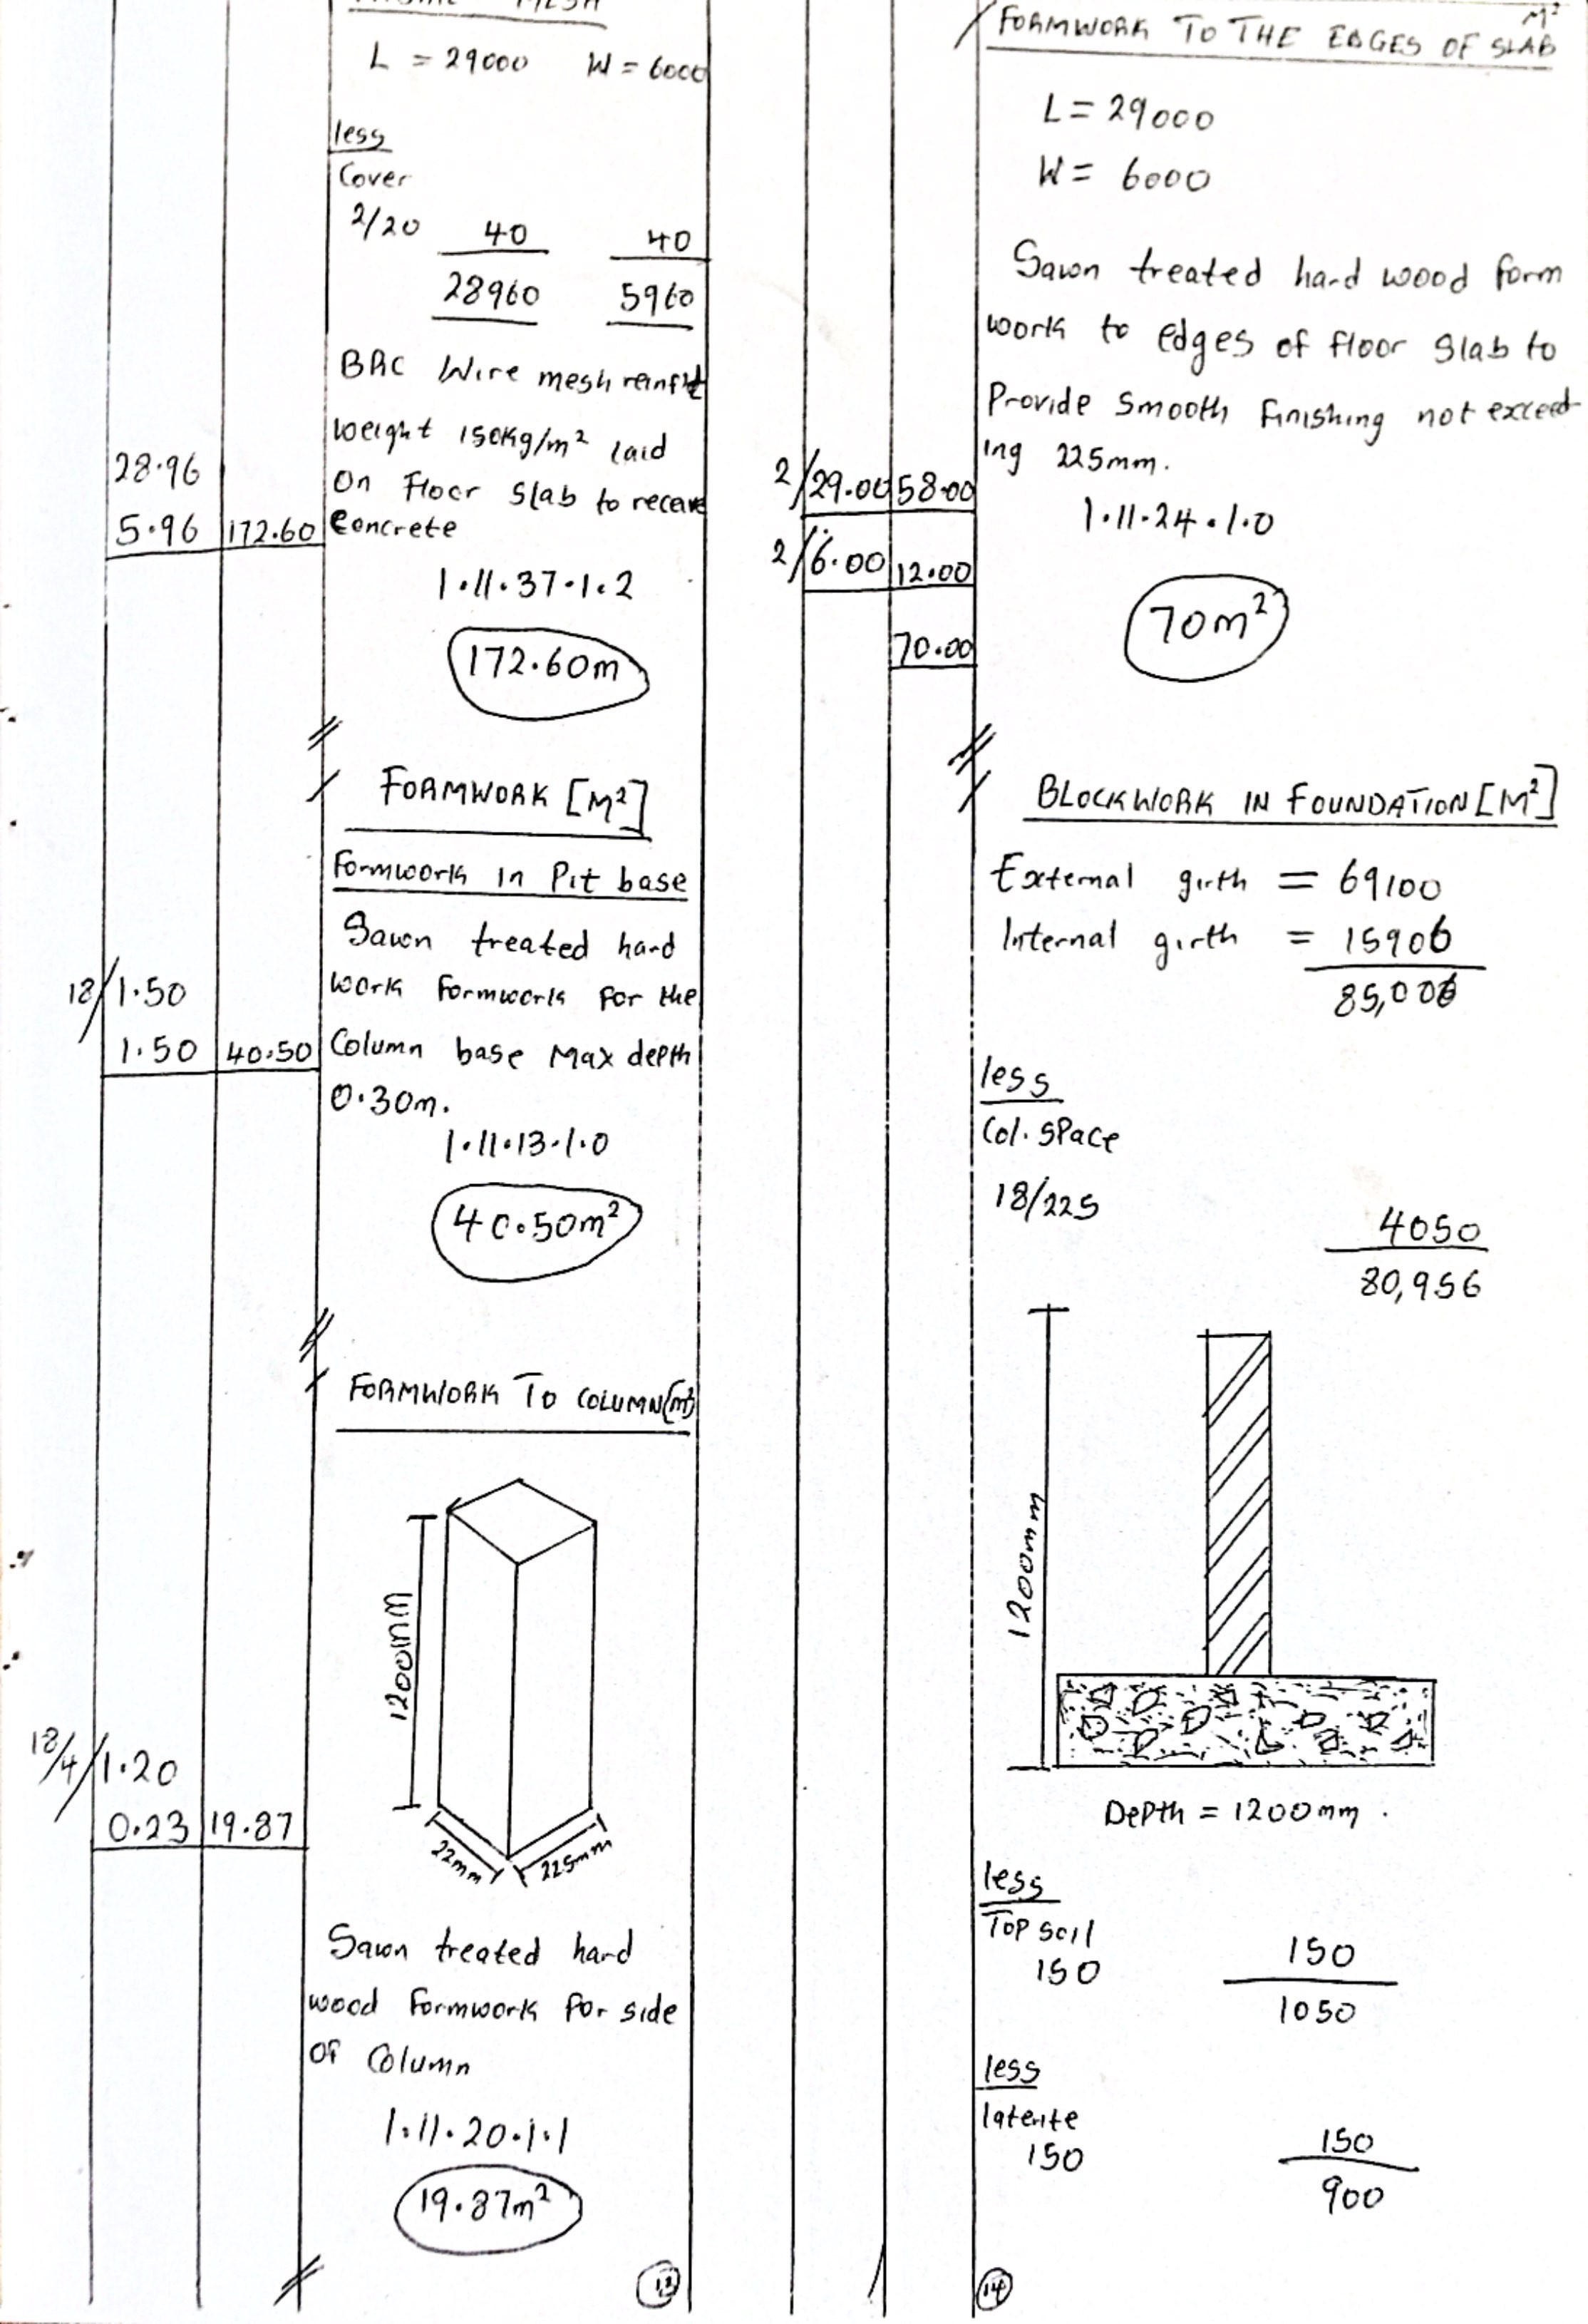 MESH
L = 29000 W = 6000
less
Cover
2/20 40 40
28960 5960
BRC Wire mesh reinf't
weight 150kg/m² laid
28.96
On Floor Slab to receive
5.96 172.60 Concrete
1.11.37.1.2
172.60m
FORMWORK [M²]
Formwork in Pit base
Sawn treated hard
18/1.50 work formwork for the
1.50 40.50 Column base Max depth
0.30m.
1.11.13.1.0
40.50m²
FORMWORK TO COLUMN(m²)
1200mm
18/4/1.20
0.23 19.87
22mm 225mm
Sawn treated hard
wood formwork for side
Of Column
1.11.20.1.1
19.87m²
13
M²
FORMWORK TO THE EDGES OF SLAB
L = 29000
W = 6000
Sawn treated hard wood form
work to edges of floor slab to
Provide smooth finishing not exceed
ing 225mm.
2/29.00 58.00
1.11.24.1.0
2/6.00 12.00
70m²
70.00
BLOCKWORK IN FOUNDATION [M²]
External girth = 69100
Internal girth = 15906
85,006
less
Col. space
18/225
4050
80,956
1200mm
Depth = 1200mm.
less
Top soil
150 150
1050
less
laterite
150 150
900
14